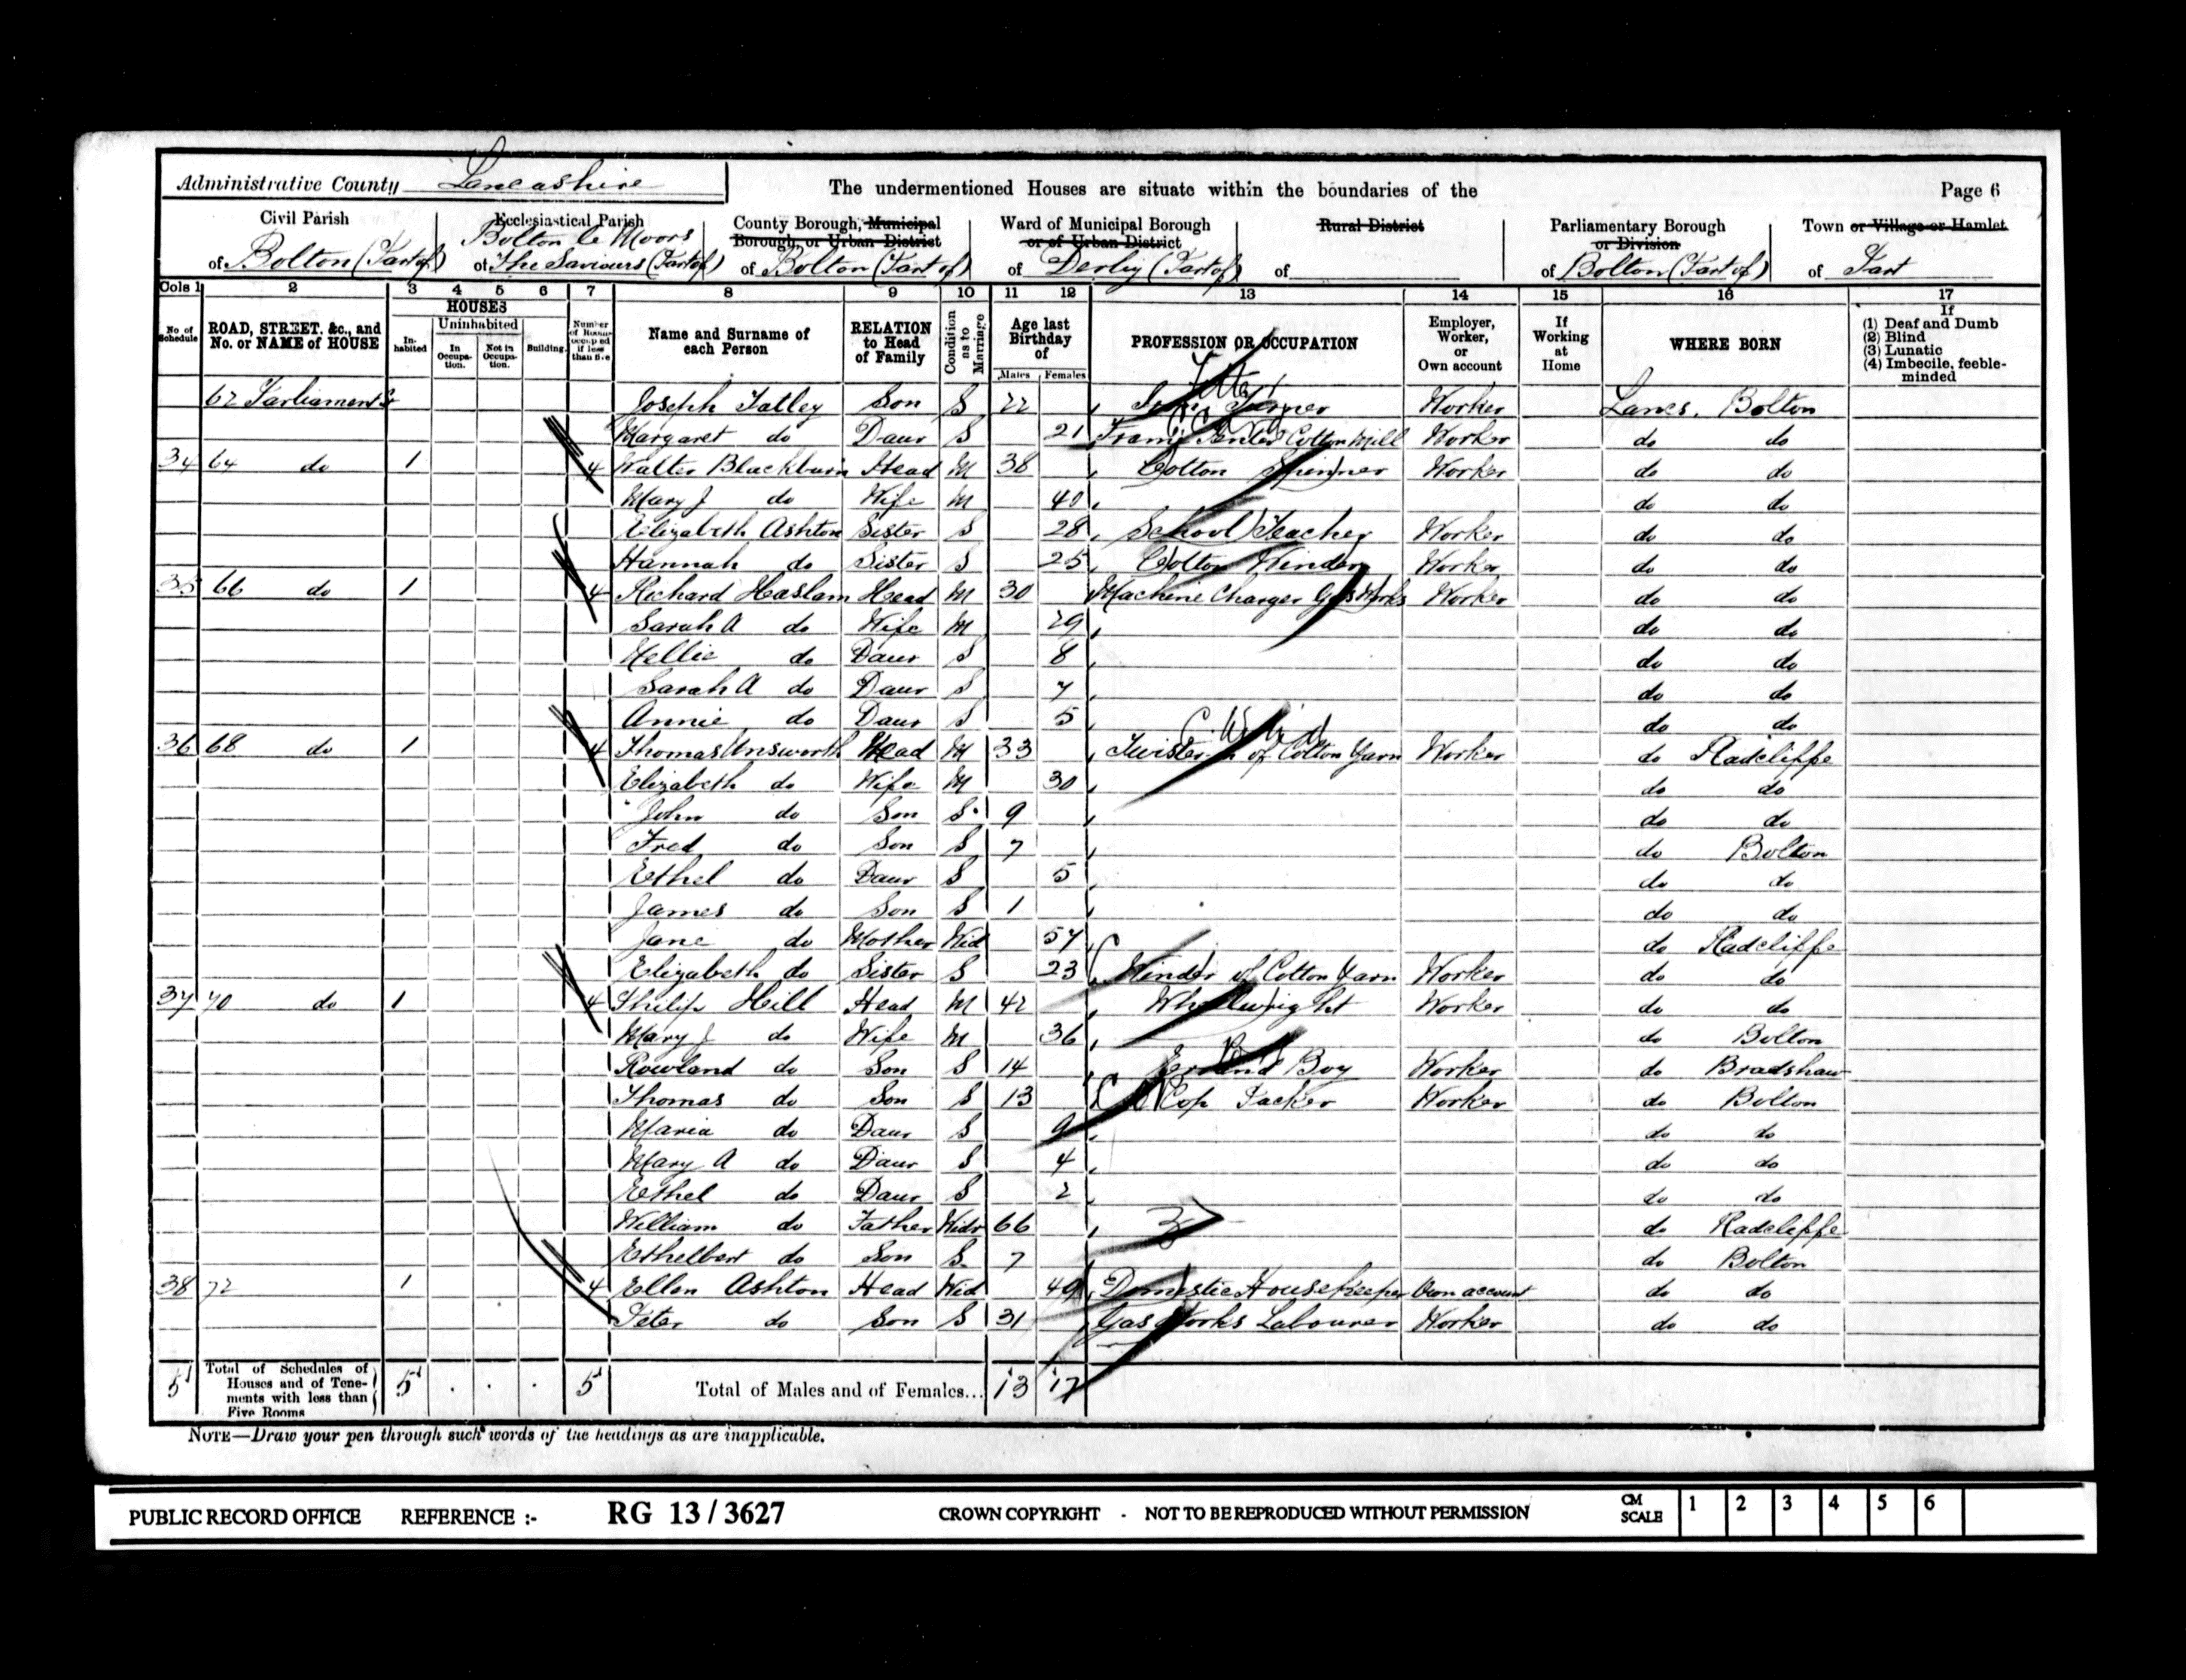 Administrative County Lancashire The undermentioned Houses are situate within the boundaries of the Page 6
Civil Parish Ecclesiastical Parish County Borough, Municipal Borough, or Urban District Ward of Municipal Borough or of Urban District Rural District Parliamentary Borough or Division Town or Village or Hamlet
of Bolton (Part of) Bolton le Moors of The Saviours (Part of) of Bolton (Part of) of Derby (Part of) of of Bolton (Part of) of Part
Cols 1 2 3 4 5 6 7 8 9 10 11 12 13 14 15 16 17
No of Schedule ROAD, STREET, &c., and No. or NAME of HOUSE HOUSES Inhabited Uninhabited In Occupation. Not in Occupation. Building. Number of Rooms occupied if less than five Name and Surname of each Person RELATION to Head of Family Condition as to Marriage Age last Birthday of Males Females PROFESSION OR OCCUPATION Employer, Worker, or Own account If Working at Home WHERE BORN If (1) Deaf and Dumb (2) Blind (3) Lunatic (4) Imbecile, feeble-minded
62 Parliament St Joseph Talley Son S 22 Turner Worker Lancs. Bolton
Margaret do Daur S 21 Frame Tenter Cotton Mill Worker do do
34 64 do 1 4 Walter Blackburn Head M 38 Cotton Spinner Worker do do
Mary J do Wife M 40 do do
Elizabeth Ashton Sister S 28 School Teacher Worker do do
Hannah do Sister S 25 Cotton Winder Worker do do
35 66 do 1 4 Richard Haslam Head M 30 Machine Charger Gas Works Worker do do
Sarah A do Wife M 29 do do
Nellie do Daur S 8 do do
Sarah A do Daur S 7 do do
Annie do Daur S 5 do do
36 68 do 1 4 Thomas Unsworth Head M 33 Twister in of Cotton Yarn Worker do Radcliffe
Elizabeth do Wife M 30 do do
John do Son S 9 do do
Fred do Son S 7 do Bolton
Ethel do Daur S 5 do do
James do Son S 1 do do
Jane do Mother Wid 57 do Radcliffe
Elizabeth do Sister S 23 Winder of Cotton Yarn Worker do do
37 70 do 1 4 Philip Hill Head M 42 Wheelwright Worker do do
Mary J do Wife M 36 do Bolton
Rowland do Son S 14 Errand Boy Worker do Bradshaw
Thomas do Son S 13 Cop Packer Worker do Bolton
Maria do Daur S 9 do do
Mary A do Daur S 4 do do
Ethel do Daur S 2 do do
William do Father Widr 66 3 do Radcliffe
Ethelbert do Son S 7 do Bolton
38 72 1 4 Ellen Ashton Head Wid 49 Domestic Housekeeper Own account do do
Peter do Son S 31 Gas Works Labourer Worker do do
5 Total of Schedules of Houses and of Tenements with less than Five Rooms 5 . . . 5 Total of Males and of Females... 13 17
NOTE—Draw your pen through such words of the headings as are inapplicable.
PUBLIC RECORD OFFICE REFERENCE :- RG 13 / 3627 CROWN COPYRIGHT - NOT TO BE REPRODUCED WITHOUT PERMISSION CM SCALE 1 2 3 4 5 6